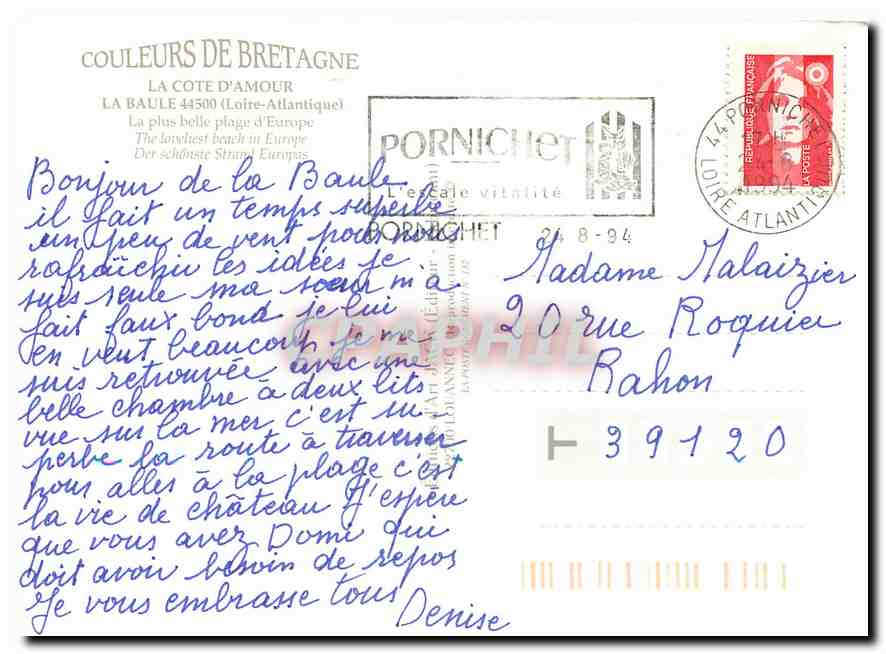 COULEURS DE BRETAGNE
LA COTE D'AMOUR
LA BAULE 44500 (Loire-Atlantique)
La plus belle plage d'Europe
The loveliest beach in Europe
Der schönste Strand Europas
Bonjour de la Baule
il fait un temps superbe
un peu de vent pour nous
rafraîchir les idées je
suis seule ma sœur m'a
fait faux bond je lui
en veut beaucoup je me
suis retrouvée avec une
belle chambre à deux lits
vue sur la mer c'est su-
perbe la route à traverser
pour alles à la plage c'est
la vie de château J'espère
que vous avez Domi qui
doit avoir besoin de repos
Je vous embrasse tous
Denise
PORNICHET
L'escale vitalité
PORNICHET 24 8-94
REPUBLIQUE FRANÇAISE
LA POSTE
44 PORNICHET
1994
LOIRE ATLANTIQUE
Madame Malaizier
20 rue Roquier
Rahon
39120
CPAPHIL